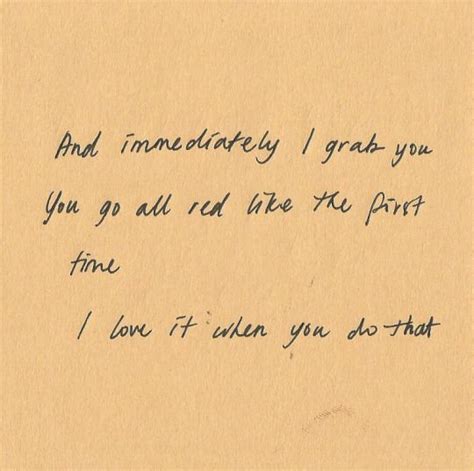 And immediately I grab you
You go all red like the first
time
I love it when you do that